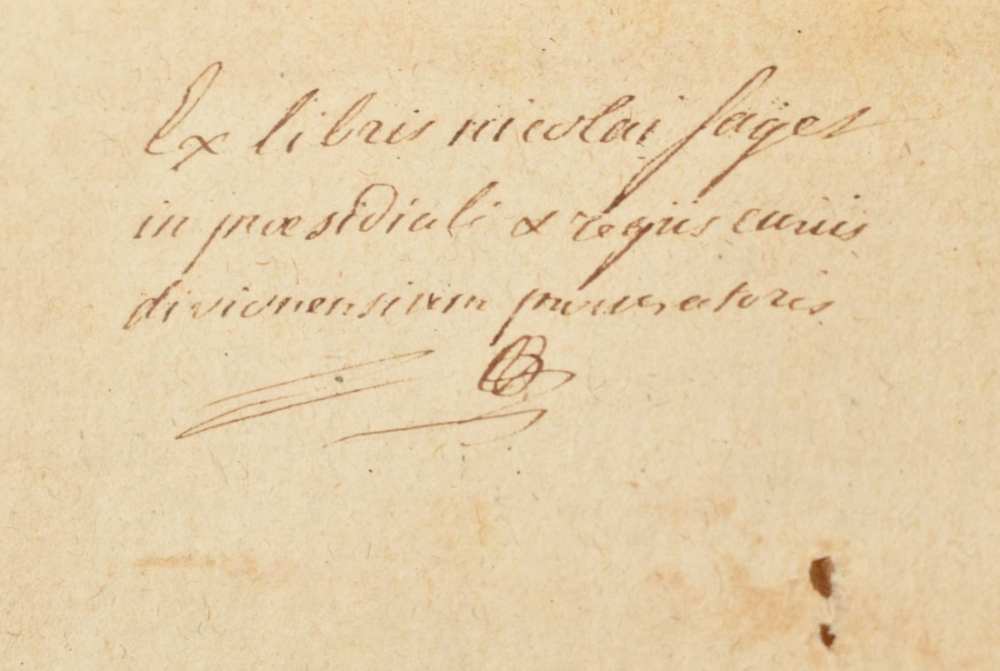 Ex libris nicolai Sayet
in præsidiali & regiis curiis
divionensium procuratoris